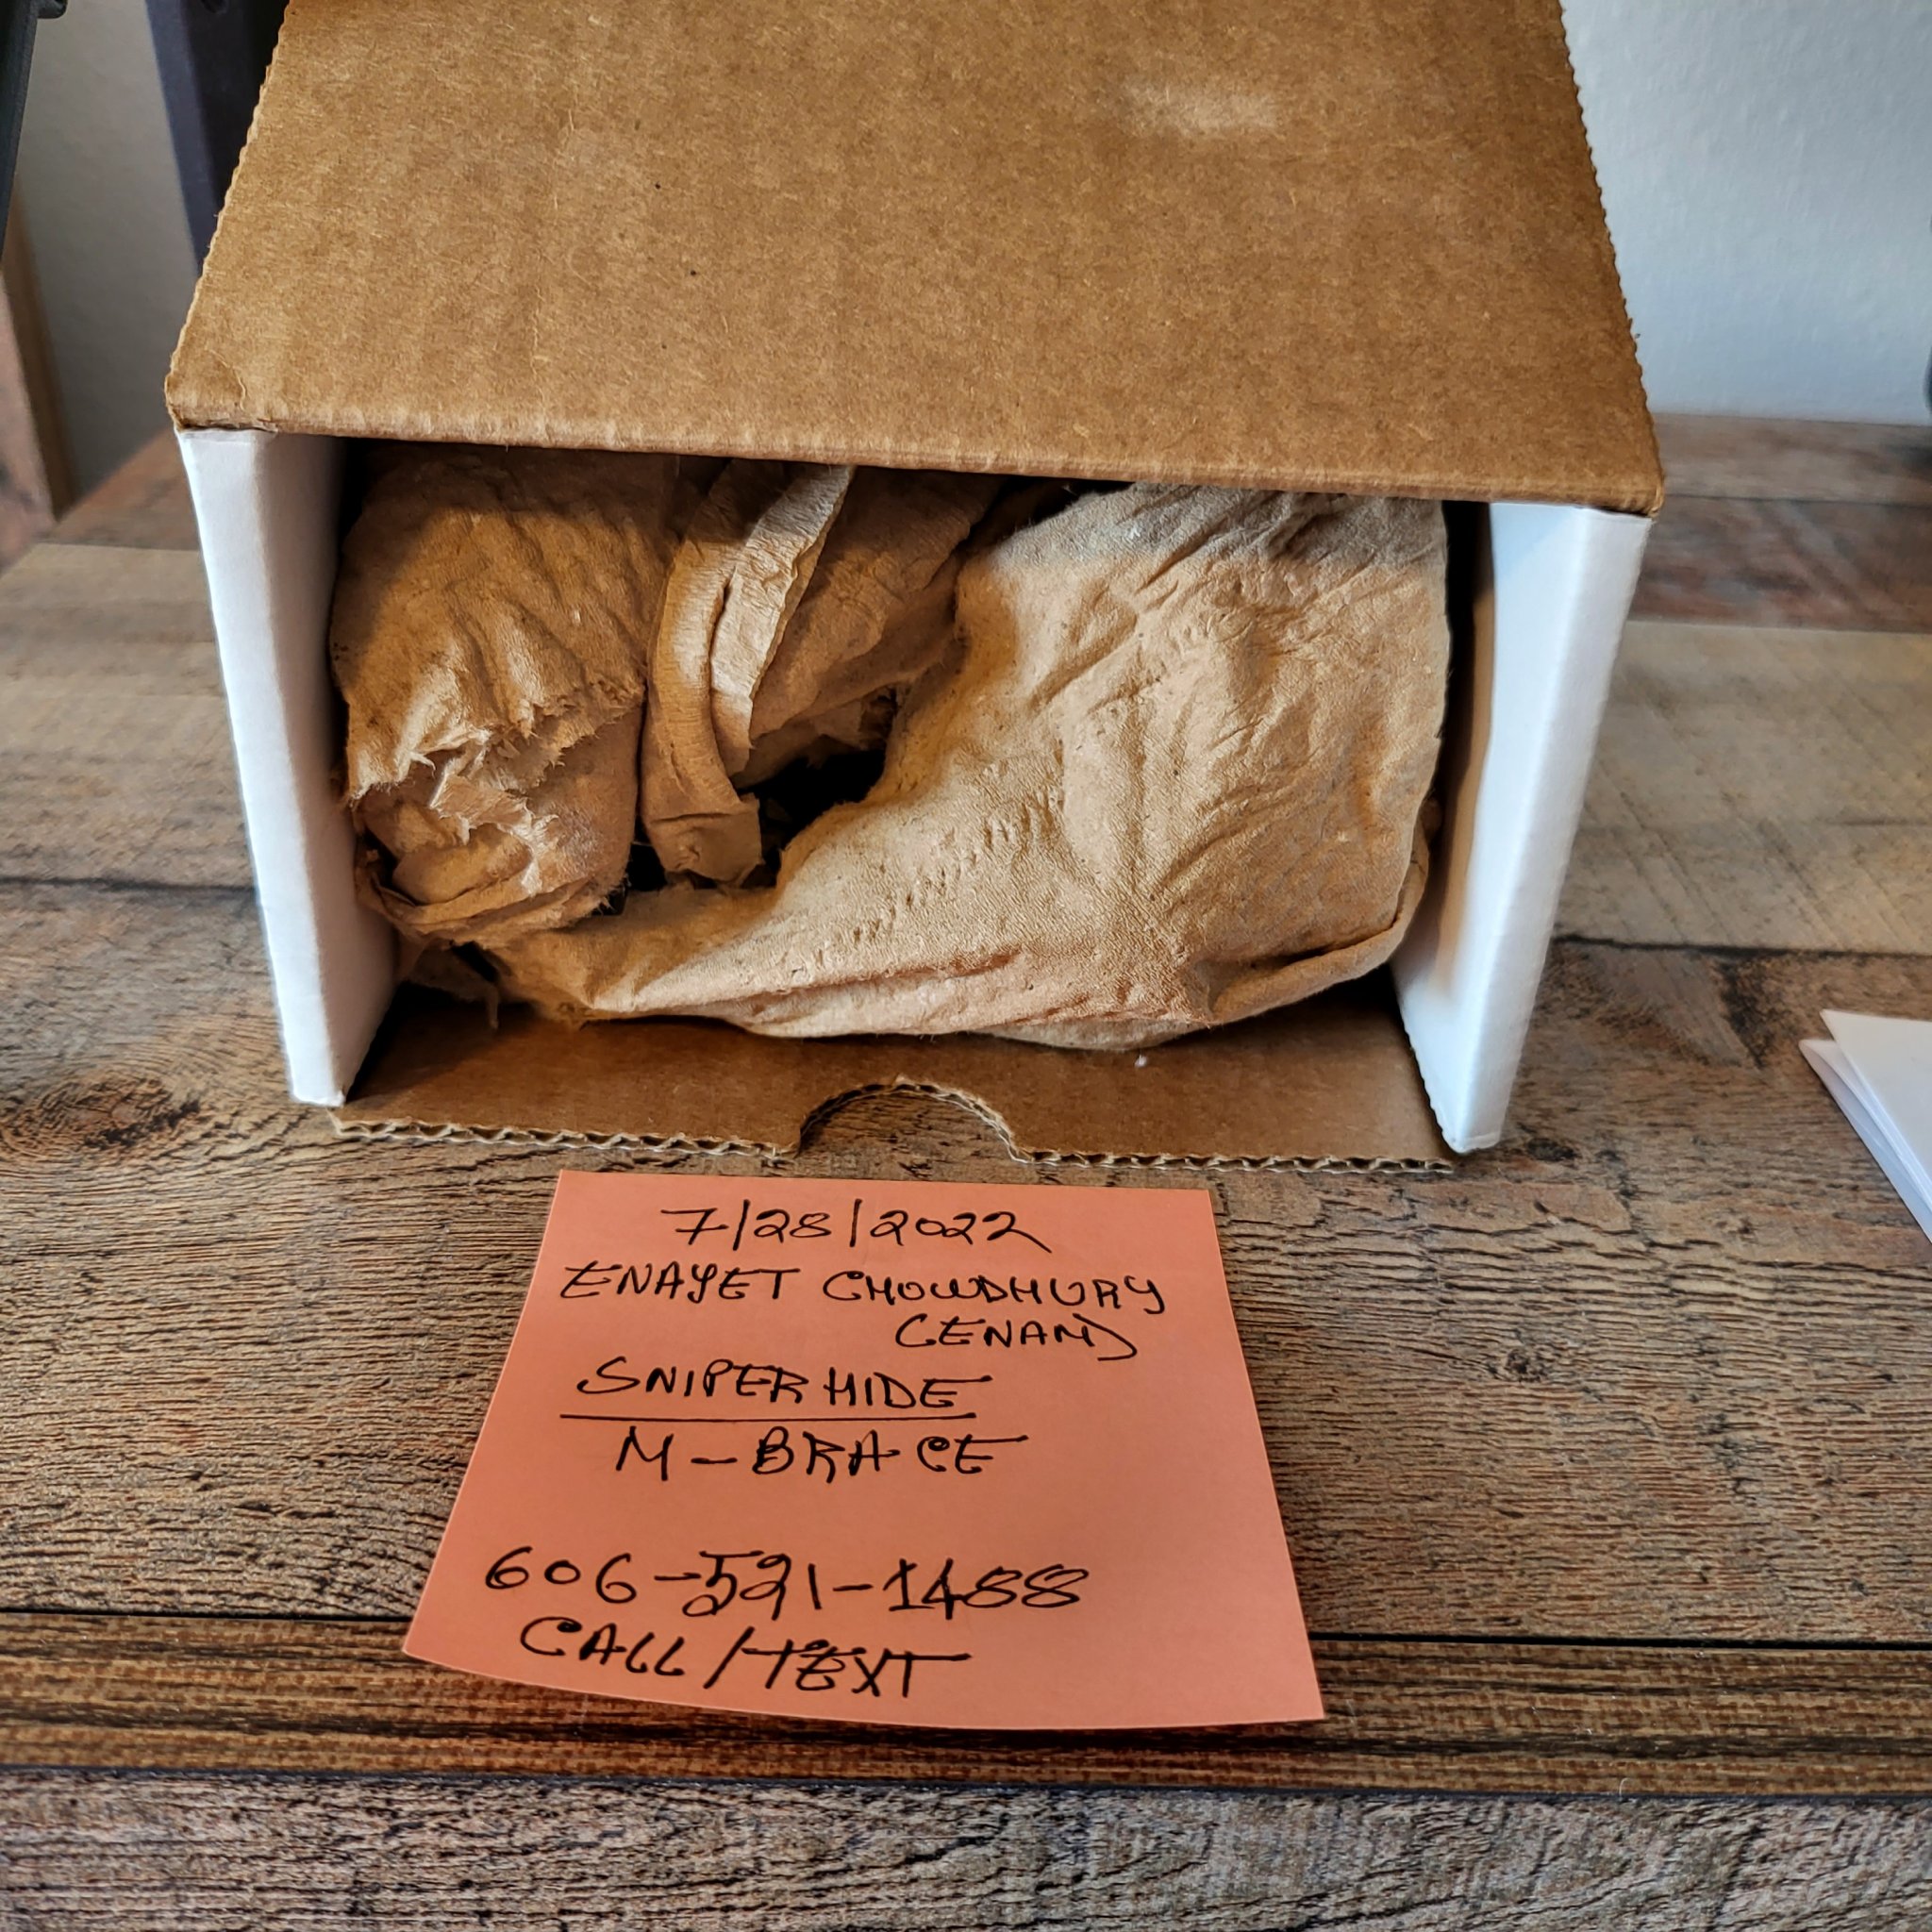 7/28/2022
ENAYET CHOWDHURY
(ENAM)
SNIPER HIDE
M-BRACE
606-521-1488
CALL/TEXT